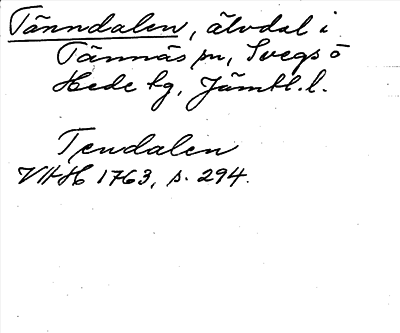 Tänndalen, älvdal i
Tännäs sn, Svegs o
Hede tg, Jämtl. l.
Tendalen
VHH 1763, s. 294.